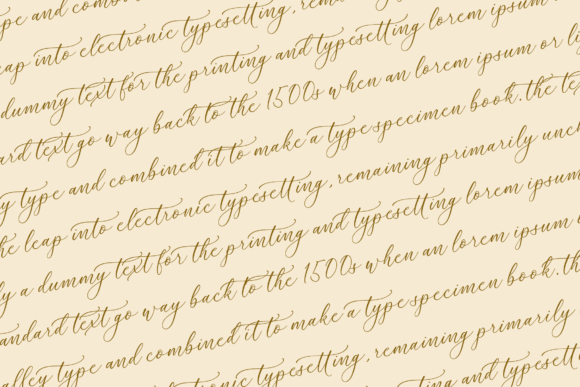 ype and comb
leap into electronic typesetting, rema
dummy text for the printing and typesetting lorem ipsum
ard text go way back to the 1500s when an lorem ipsum or li
y type and combined it to make a type specimen book. the te
he leap into electronic typesetting, remaining primarily unch
ly a dummy text for the printing and typesetting lorem ipsum
andard text go way back to the 1500s when an lorem ipsum
alley type and combined it to make a type specimen book. th
electronic typesetting, remaining primarily
and typesett